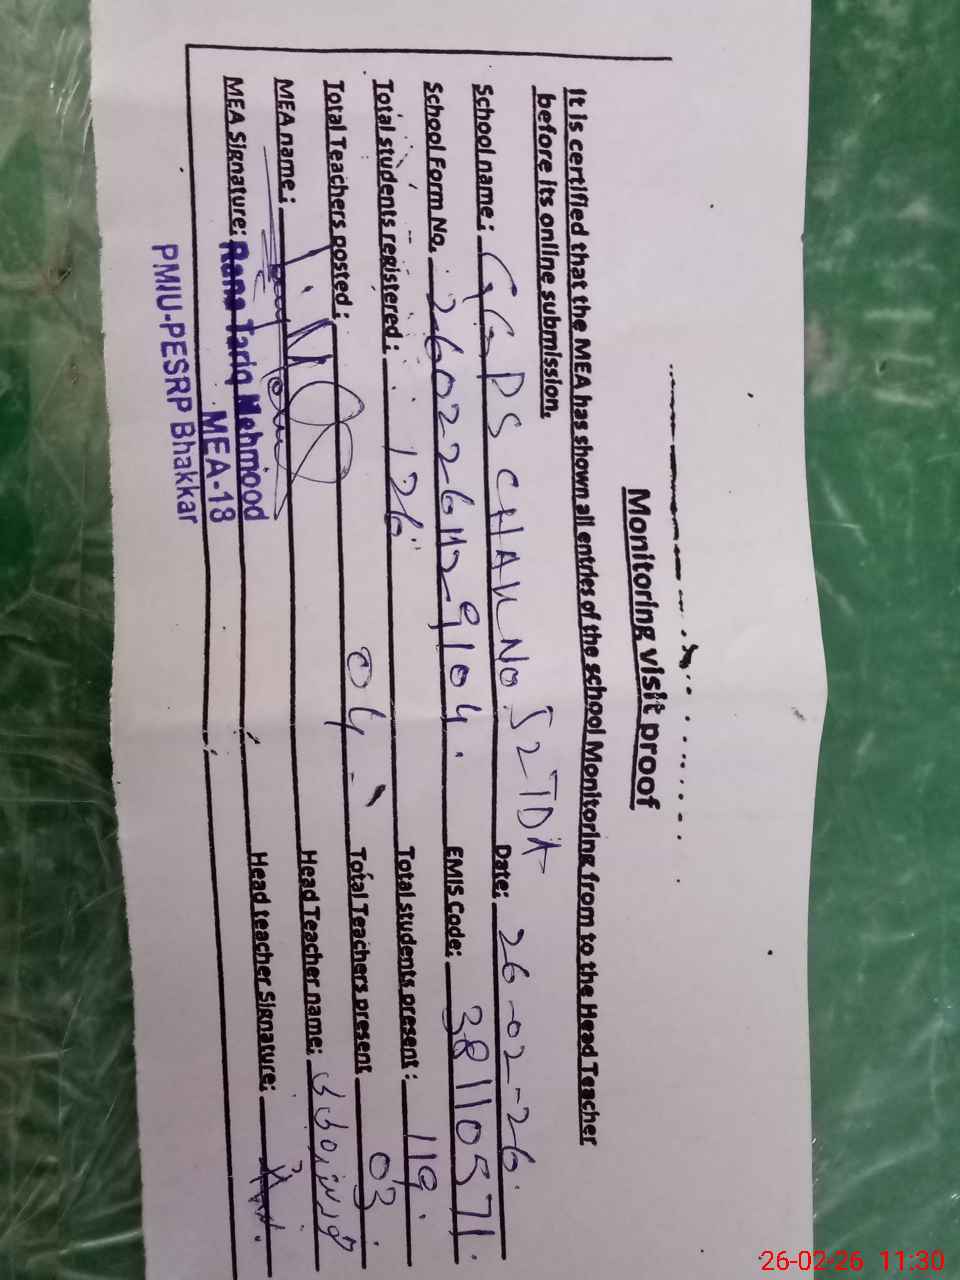 Monitoring visit proof
It is certified that the MEA has shown all entries of the school Monitoring from to the Head Teacher
before its online submission.
School name: GGPS CHAK NO 52TDA Date: 26-02-26.
School Form No. 2602261129104. EMIS Code: 38110571.
Total students registered: 126 Total students present: 119.
Total Teachers posted: 04 Total Teachers present 03
MEA name: Head Teacher name:
MEA Signature: Head teacher Signature:
Rana Tariq Mehmood
MEA-18
PMIU-PESRP Bhakkar
26-02-26 11:30